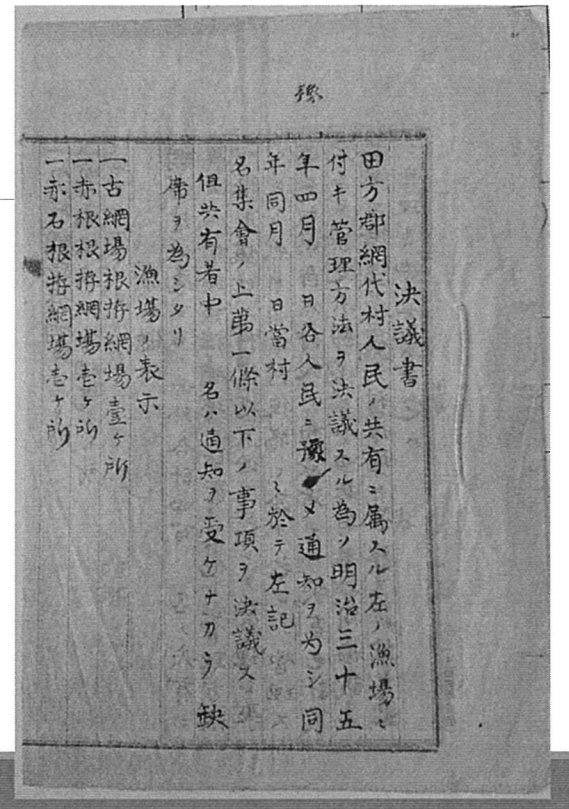 豫
決議書
田方郡網代村人民ノ共有ニ属スル左ノ漁場ニ
付キ管理方法ヲ決議スル為ソ明治三十五
年四月 日各人民ニ豫メ通知ヲ为シ同
年同月 日當村 ニ於テ左記
名集會ノ上第一條以下ノ事項ヲ決議ス
但共有者中 名ハ通知ヲ受ケナカラ缺
席ヲ為シタリ
漁場ノ表示
一古網場根拵網場壹ヶ所
一赤根根拵網場壱ヶ所
一赤石根拵網場壱ヶ所